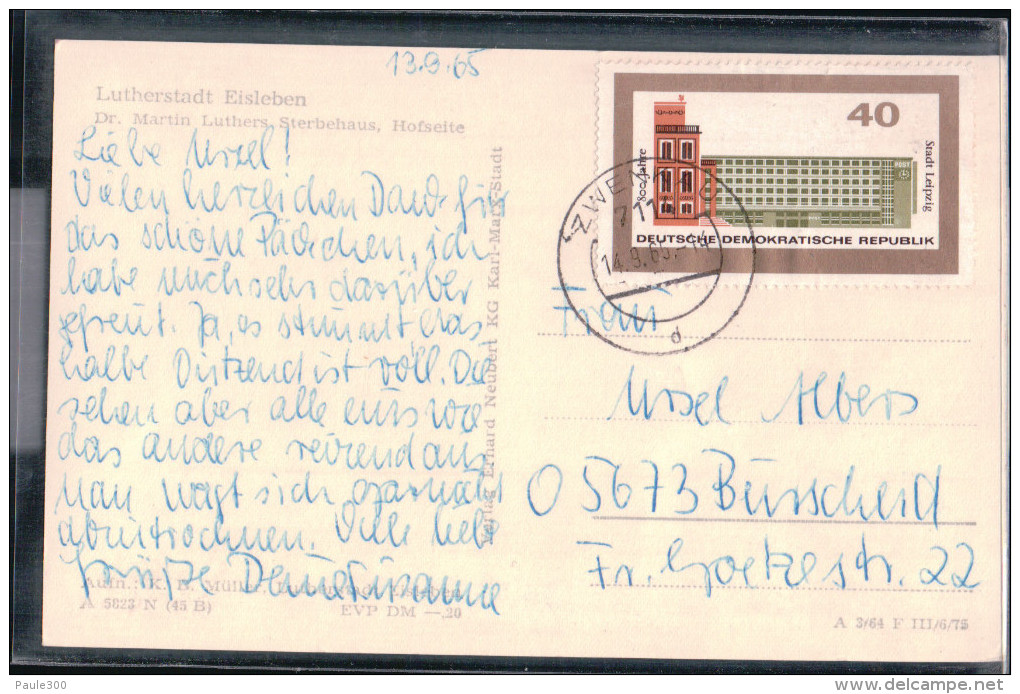 13.9.65
Lutherstadt Eisleben
Dr. Martin Luthers Sterbehaus, Hofseite
Liebe Ursel!
Vielen herzlichen Dank für
das schöne Päckchen, ich
habe mich sehr darüber
gefreut. Ja, es stimmt, das
halbe Dutzend ist voll. Die
sehen aber alle eins wie
das andere reizend aus
Man wagt sich garnicht
abzutrocknen. Viele liebe
Grüße Deine
Aufn.: K. B. Müller,
A 5823 N (45 B)
EVP DM —,20
Verlag Erhard Neubert KG Karl-Marx-Stadt
40
800 Jahre
Stadt Leipzig
POST
DEUTSCHE DEMOKRATISCHE REPUBLIK
14.9.65.-14
d
Frau
Ursel Albers
05673 Burscheid
Fr. Goetzestr. 22
A 3/64 F III/6/75
Paule300